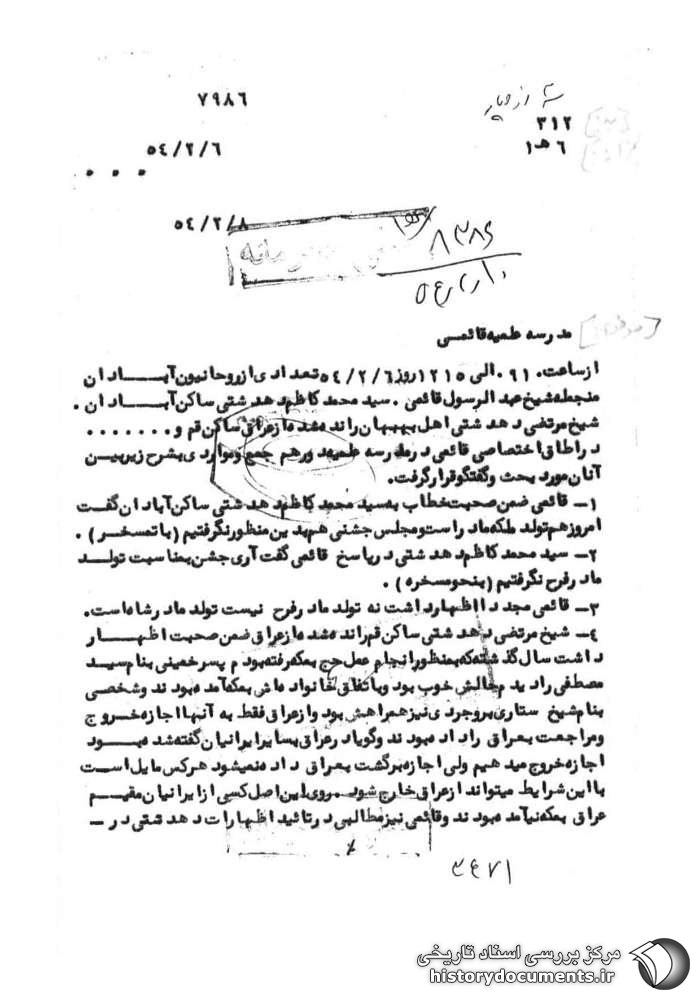 ۷۹۸۶
۳۱۲
۶ هـ ۱
۵۴/۲/۶
۰ ۰ ۰
۵۴/۲/۸
۸۳۸۶
مدرسه علمیه قائمی
از ساعت ۰۹۱۰ الی ۱۲۱۵ روز ۵۴/۲/۶ تعدادی از روحانیون آبادان
منجمله شیخ عبدالرسول قائمی ۰ سید محمد کاظم دهدشتی ساکن آبادان ۰
شیخ مرتضی دهدشتی اهل بهبهان رانده شده از عراق ساکن قم و ۰۰۰۰۰۰۰
در اطاق اختصاصی قائمی در مدرسه علمیه دورهم جمع و مواردی بشرح زیر بین
آنان مورد بحث و گفتگو قرار گرفت.
۱ـ قائمی ضمن صحبت خطاب به سید محمد کاظم دهدشتی ساکن آبادان گفت
امروز هم تولد ملکه مادر است و مجلس جشنی هم بدین منظور نگرفتیم (با تمسخر) ۰
۲ـ سید محمد کاظم دهدشتی در پاسخ قائمی گفت آری جشن بمناسبت تولد
مادر فرح نگرفتیم (بنحو مسخره) ۰
۳ـ قائمی مجددا اظهار داشت نه تولد مادر فرح نیست تولد مادر شاه است.
۴ـ شیخ مرتضی دهدشتی ساکن قم رانده شده از عراق ضمن صحبت اظهار
داشت سال گذشته که بمنظور انجام عمل حج بمکه رفته بودم پسر خمینی بنام سید
مصطفی را دیدم حالش خوب بود و باتفاق خانواده اش بمکه آمده بودند و شخصی
بنام شیخ ستاری بروجردی نیز همراهش بود و از عراق فقط به آنها اجازه خروج
و مراجعت بعراق را داده بودند و گویا در عراق بسایر ایرانیان گفته شده بود
اجازه خروج میدهیم ولی اجازه برگشت بعراق داده نمیشود هرکس مایل است
با این شرایط میتواند از عراق خارج شود ۰ روی این اصل کسی از ایرانیان مقیم
عراق بمکه نیامده بودند و قائمی نیز مطالبی در تائید اظهارات دهدشتی در ـ
۳۴۷۱
مرکز بررسی اسناد تاریخی
historydocuments.ir